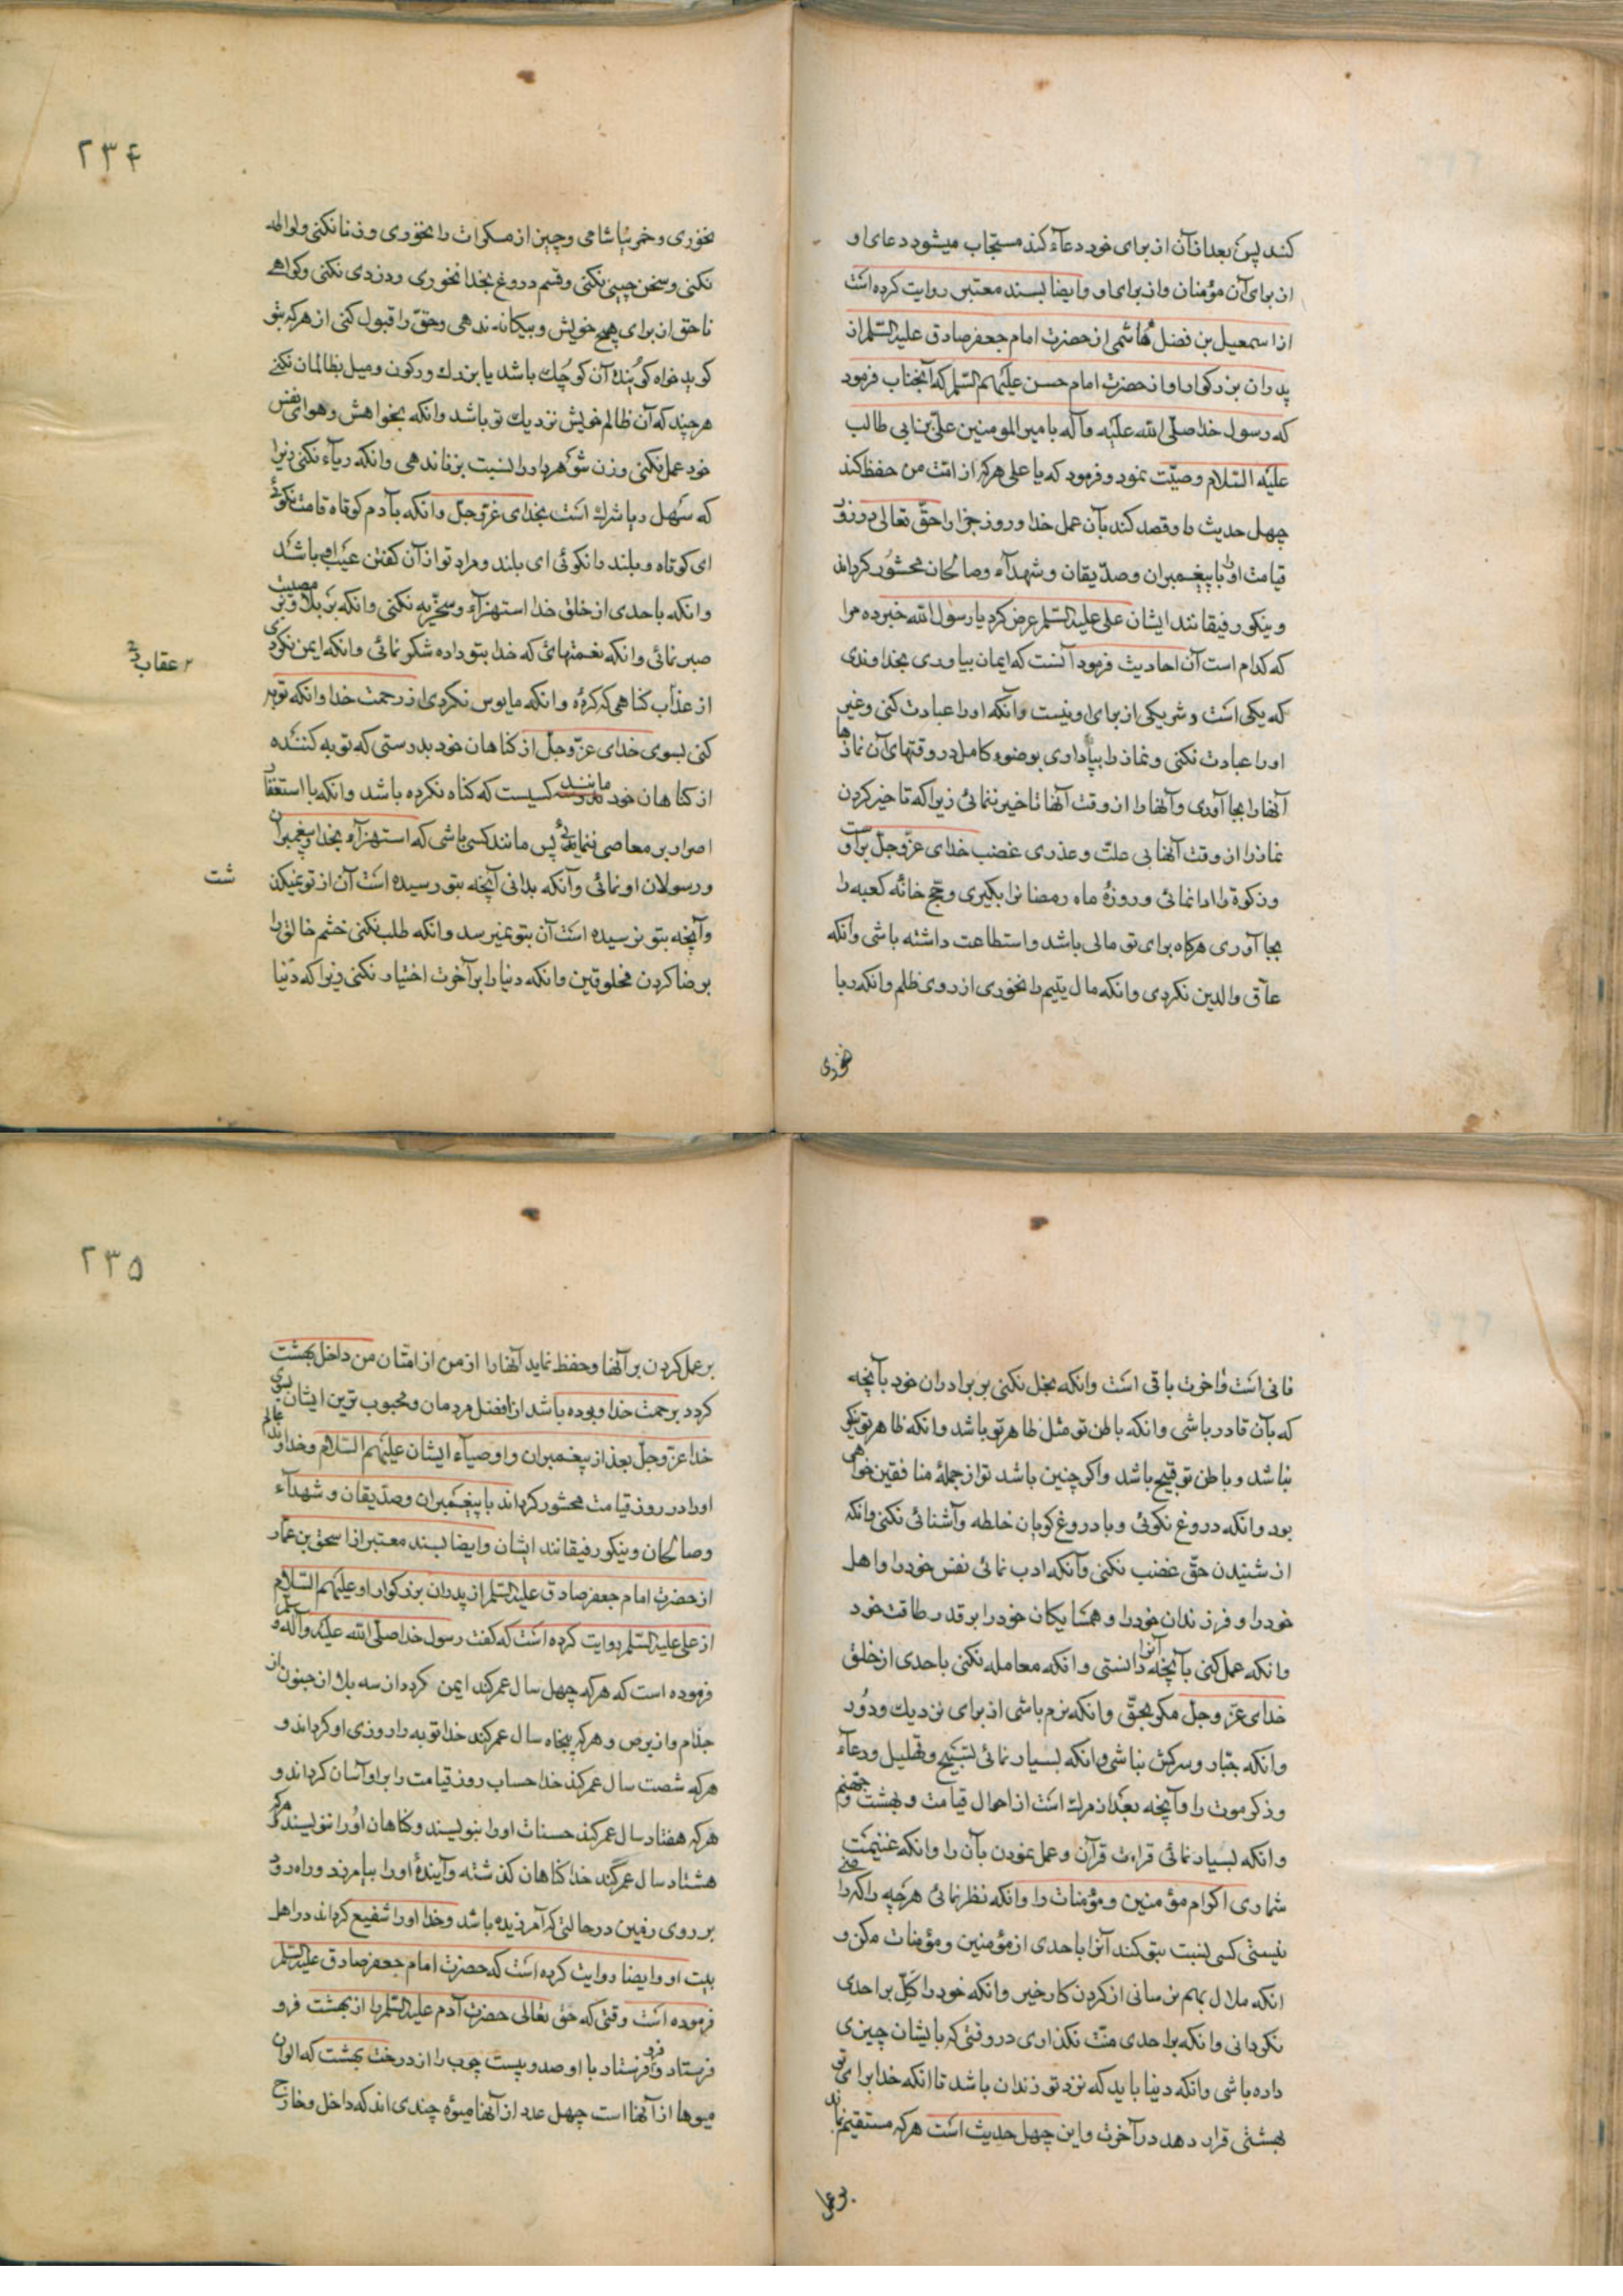 کند پس بعد از آن از برای خود دعآء کند مستجاب میشود دعای او
از برای آن مؤمنان و از برای او و ایضا بسند معتبر روایت کرده است
از اسمعیل بن فضل هاشمی از حضرت امام جعفر صادق علیه السلم از
پدران بزرکوار او از حضرت امام حسن علیهم السلم که آنجناب فرمود
که رسول خدا صلی الله علیه وآله بامیر المومنین علی بن ابی طالب
علیه السلام وصیّت نمود و فرمود که یا علی هرکه از امت من حفظ کند
چهل حدیث را و قصد کند بآن عمل خدا و روز جزا را حقّ تعالی در روز
قیامت اورا با پیغمبران و صدّیقان و شهدآء و صالحان محشور کرداند
و نیکو رفیقانند ایشان علی علیه السلم عرض کرد یا رسول الله خبر ده مرا
که کدام است آن احادیث فرمود آنست که ایمان بیاوری بخداوندی
که یکی است و شریکی از برای او نیست وآنکه اورا عبادت کنی و غیر
اورا عبادت نکنی و نماز را بپا داری بوضوء کامل در وقتهای آن نمازها
آنها را بجا آوری وآنها را از وقت آنها تاخیر ننمائی زیرا که تاخیر کردن
نماز را از وقت آنها بی علت و عذری غضب خدای عزّ وجلّ براوست
و زکوة را ادا نمائی و روزهٔ ماه رمضانرا بگیری و حج خانهٔ کعبه را
بجا آوری هرکاه برای تو مالی باشد و استطاعت داشته باشی وآنکه
عاّق والدین نکردی وانکه مال یتیم را نخوری از روی ظلم وانکه ربا
نخوری
۲۳۴
نخوری و خمر نیاشامی و چیز از مسکرات را نخوری و زنا نکنی و لواطه
نکنی و سخن چینی نکنی و قسم دروغ بخدا نخوری و دزدی نکنی و کواهے
ناحق از برای هیچ خویش و بیکانه ندهی و حقّ را قبول کنی از هرکه بتو
کوید خواه کویندهٔ آن کوچك باشد یا بزرك و رکون و میل بظالمان نکنے
هرچند که آن ظالم خویش نزدیك تو باشد وانکه بخواهش و هوای نفس
خود عمل نکنی و زن شوهردار را نسبت بزنا ندهی وانکه ریآء نکنی زیرا
که سهل ریا شرك است بخدای عزّ وجلّ وانکه بآدم کوتاه قامت نکوئی
ای کوتاه و بلند را نکوئی ای بلند و مراد تو از آن کفتن عیب او باشد
وانکه باحدی از خلق خدا استهزآء و سخریه نکنی وانکه بر بلا و بر مصیبت
صبر نمائی وانکه نعمتهائی که خدا بتو داده شکر نمائی وانکه ایمن نکردی
۲ عقاب
از عذاب کناهی که کردهٔ وانکه مایوس نکردی از رحمت خدا وانکه توبه
کنی بسوی خدای عزّ وجلّ از کناهان خود بدرستی که توبه کننده
از کناهان خود مانند کسیست که کناه نکرده باشد وانکه با استغفار
اصرار بر معاصی ننمائی پس مانند کسی باشی که استهزآء بخدا و پیغمبران
و رسولان او نمائی وآنکه بدانی آنچه بتو رسیده است آن از تو نمیکذ
شت
وآنچه بتو نرسیده است آن بتو نمیرسد وانکه طلب نکنی خشم خالق را
برضا کردن مخلوقین وانکه دنیا را بر آخرت اختیار نکنی زیرا که دنیا
فانی است و آخرت باقی است وانکه بخل نکنی بر برادران خود بآنچه
که بآن قادر باشی وانکه باطن تو مثل ظاهر تو باشد وانکه ظاهر تو نیکو
نباشد و باطن تو قبیح باشد واکر چنین باشد تو از جملهٔ منافقین خواهی
بود وانکه دروغ نکوئی و با دروغ کویان خلطه وآشنائی نکنی وانکه
از شنیدن حقّ غضب نکنی وآنکه ادب نمائی نفس خود را و اهل
خود را و فرزندان خود را و همسایکان خود را بر قدر طاقت خود
وانکه عمل کنی بآنچه آنرا دانستی وانکه معامله نکنی باحدی از خلق
خدای عزّ وجلّ مکر بحقّ وانکه نرم باشی از برای نزدیك و دور
وانکه جبّار و سرکش نباشی وانکه بسیار نمائی تسبیح و تهلیل و دعآء
و ذکر موت را وآنچه بعد از مرك است از احوال قیامت و بهشت و جهنم
وانکه بسیار نمائی قرائت قرآن و عمل نمودن بآن را وانکه غنیمت
شماری اکرام مؤمنین و مؤمنات را وانکه نظر نمائی هرچه را که راضے
نیستی کسی نسبت بتو کند آنرا باحدی از مؤمنین و مؤمنات مکن و
انکه ملال بهم نرسانی از کردن کار خیر وانکه خود را کَلّ بر احدی
نکردانی وانکه بر احدی منّت نکذاری در وقتی که بایشان چیزی
داده باشی وانکه دنیا باید که نزد تو زندان باشد تا انکه خدا برای تو
بهشتی قرار دهد در آخرت و این چهل حدیث است هرکه مستقیم نماید
بر عمل
۲۳۵
بر عمل کردن بر آنها و حفظ نماید آنها را از من از امّتان من داخل بهشت
کردد برحمت خدا و بوده باشد از افضل مردمان و محبوب ترین ایشان بسوی
خدا عزّ وجلّ بعد از پیغمبران و اوصیآء ایشان علیهم السلام و خداوند عالم
اورا در روز قیامت محشور کرداند با پیغمبران و صدّیقان و شهدآء
و صالحان و نیکو رفیقانند ایشان و ایضا بسند معتبر از اسحق بن عمّار
از حضرت امام جعفر صادق علیه السلم از پدران بزرکوار او علیهم السلام
از علی علیه السلم روایت کرده است که کفت رسول خدا صلی الله علیه وآله و سلم
فرموده است که هرکه چهل سال عمر کند ایمن کردد از سه بلا از جنون از
جذام و از برص و هرکه پنجاه سال عمر کند خدا توبه را روزی او کرداند و
هرکه شصت سال عمر کند خدا حساب روز قیامت را بر او آسان کرداند و
هرکه هفتاد سال عمر کند حسنات اورا بنویسند و کناهان اورا ننویسند و هرکه
هشتاد سال عمر کند خدا کناهان کذشته وآیندهٔ اورا بیامرزد و راه رود
بر روی زمین در حالتی که آمرزیده باشد و خدا اورا شفیع کرداند در اهل
بیت او و ایضا روایت کرده است که حضرت امام جعفر صادق علیه السلم
فرموده است وقتی که حق تعالی حضرت آدم علیه السلم را از بهشت فرو
فرستاد و فرو فرستاد با او صد و بیست چوب را از درخت بهشت که الوان
میوها از آنها است چهل عدد از آنها میوهٔ چندی اند که داخل و خارج